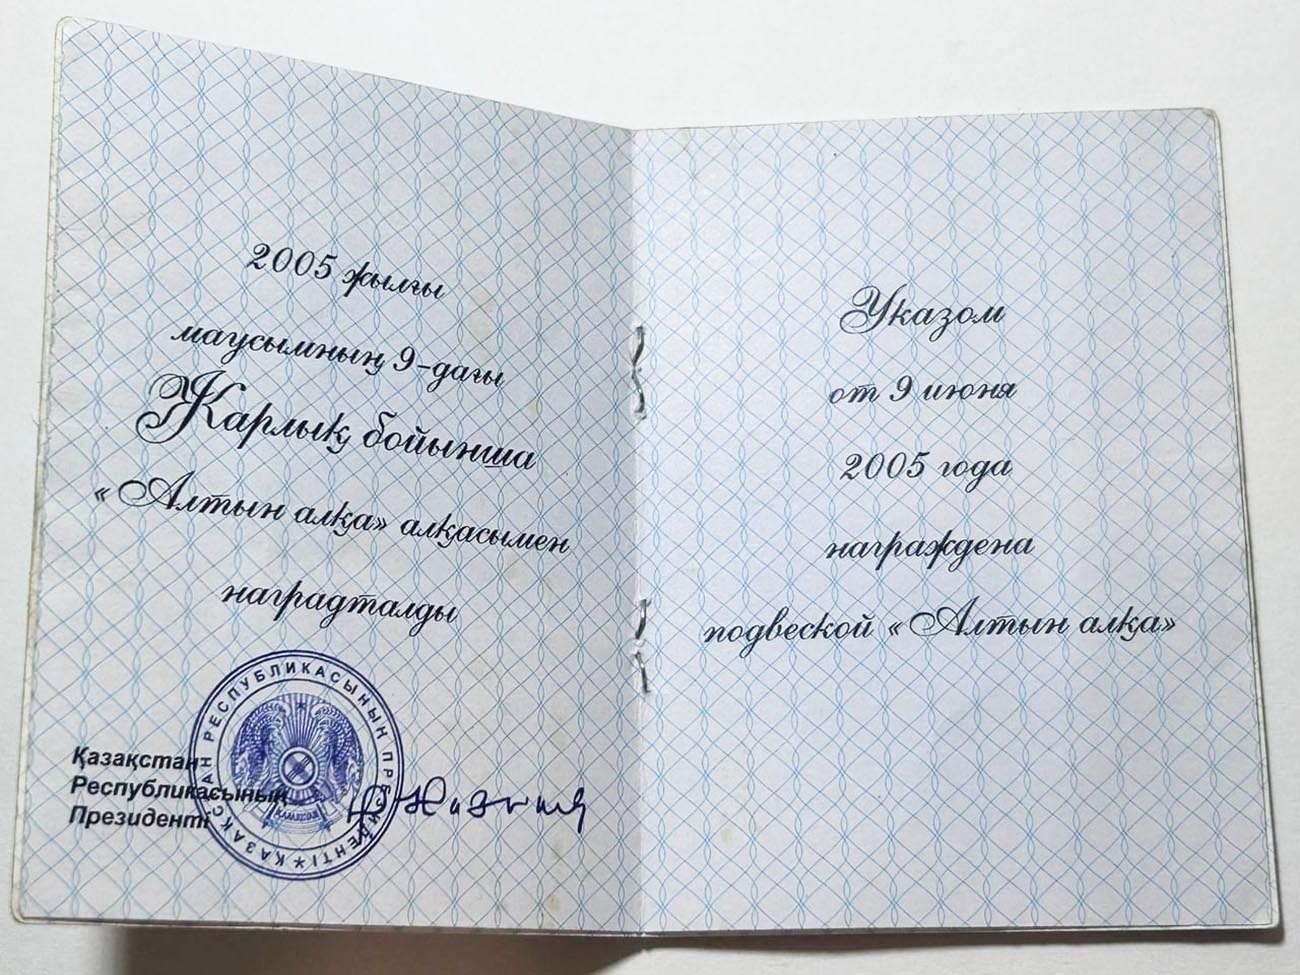 2005 жылғы
маусымның 9-дағы
Жарлық бойынша
«Алтын алқа» алқасымен
наградталды
Қазақстан
Республикасының
Президенті
ҚАЗАҚСТАН РЕСПУБЛИКАСЫНЫҢ ПРЕЗИДЕНТІ
ҚАЗАҚСТАН
Указом
от 9 июня
2005 года
награждена
подвеской «Алтын алқа»